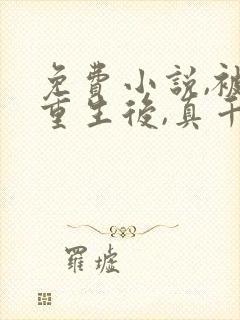 免費小説,被
重生後,真千
羅墟